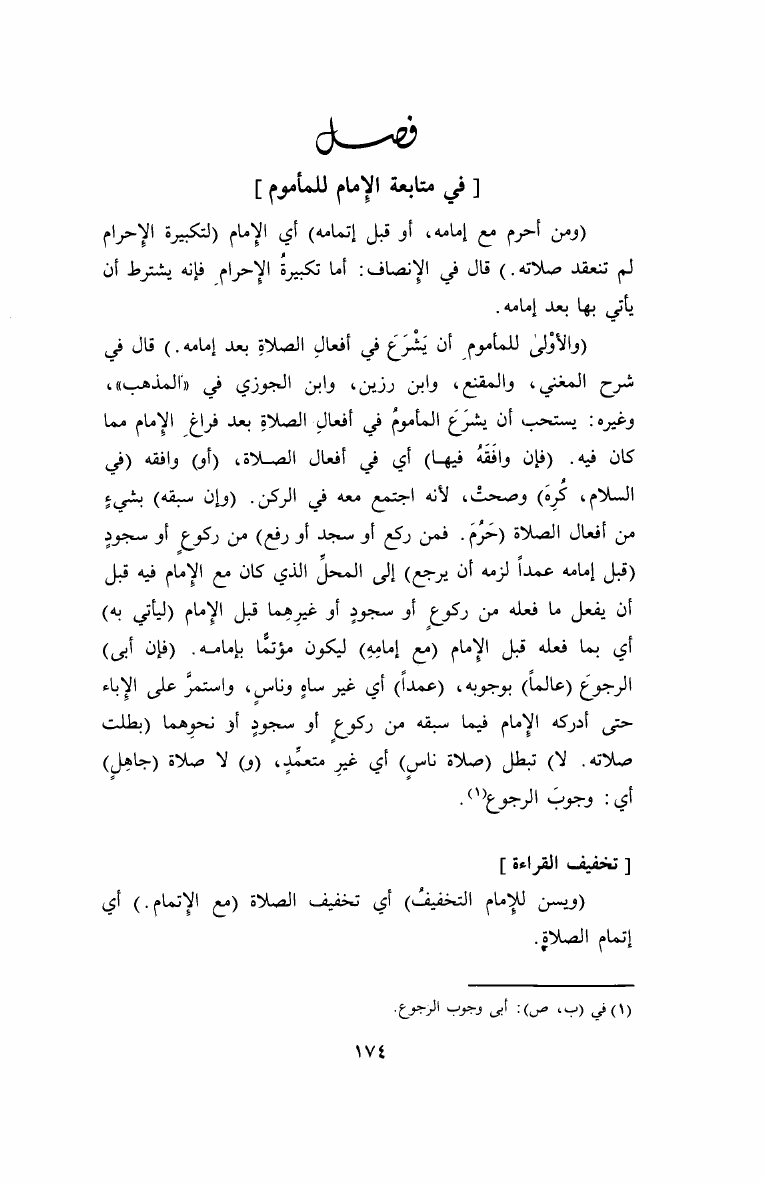 فصل
[ في متابعة الإمام للمأموم ]
(ومن أحرم مع إمامه، أو قبل إتمامه) أي الإمام (لتكبيرة الإحرام
لم تنعقد صلاته.) قال في الإنصاف: أما تكبيرةُ الإحرامِ فإنه يشترط أن
يأتي بها بعد إمامه.
(والأوْلىٰ للمأمومِ أن يَشْرَعَ في أفعالِ الصلاةِ بعد إمامه.) قال في
شرح المغني، والمقنع، وابن رزين، وابن الجوزي في «المذهب»،
وغيره: يستحب أن يشرَعَ المأمومُ في أفعالِ الصلاةِ بعد فراغِ الإمام مما
كان فيه. (فإن وافَقَهُ فيها) أي في أفعال الصلاة، (أو) وافقه (في
السلام، كُرِهَ) وصحتْ، لأنه اجتمع معه في الركن. (وإن سبقه) بشيءٍ
من أفعال الصلاة (حَرُمَ. فمن ركع أو سجد أو رفع) من ركوعٍ أو سجودٍ
(قبل إمامه عمداً لزمه أن يرجع) إلى المحلِّ الذي كان مع الإمام فيه قبل
أن يفعل ما فعله من ركوعٍ أو سجودٍ أو غيرِهما قبل الإمام (ليأتي به)
أي بما فعله قبل الإمام (مع إمامِهِ) ليكون مؤتمًّا بإمامه. (فإن أبى)
الرجوعَ (عالماً) بوجوبه، (عمداً) أي غير ساهٍ وناسٍ، واستمرَّ على الإباء
حتى أدركه الإمام فيما سبقه من ركوعٍ أو سجودٍ أو نحوِهما (بطلت
صلاته. لا) تبطل (صلاة ناسٍ) أي غيرِ متعمِّدٍ، (و) لا صلاة (جاهِلٍ)
أي: وجوبَ الرجوع(١).
[ تخفيف القراءة ]
(ويسن للإمام التخفيفُ) أي تخفيف الصلاة (مع الإتمام.) أي
إتمام الصلاةِ.
(١) في (ب، ص): أبى وجوب الرجوع.
١٧٤